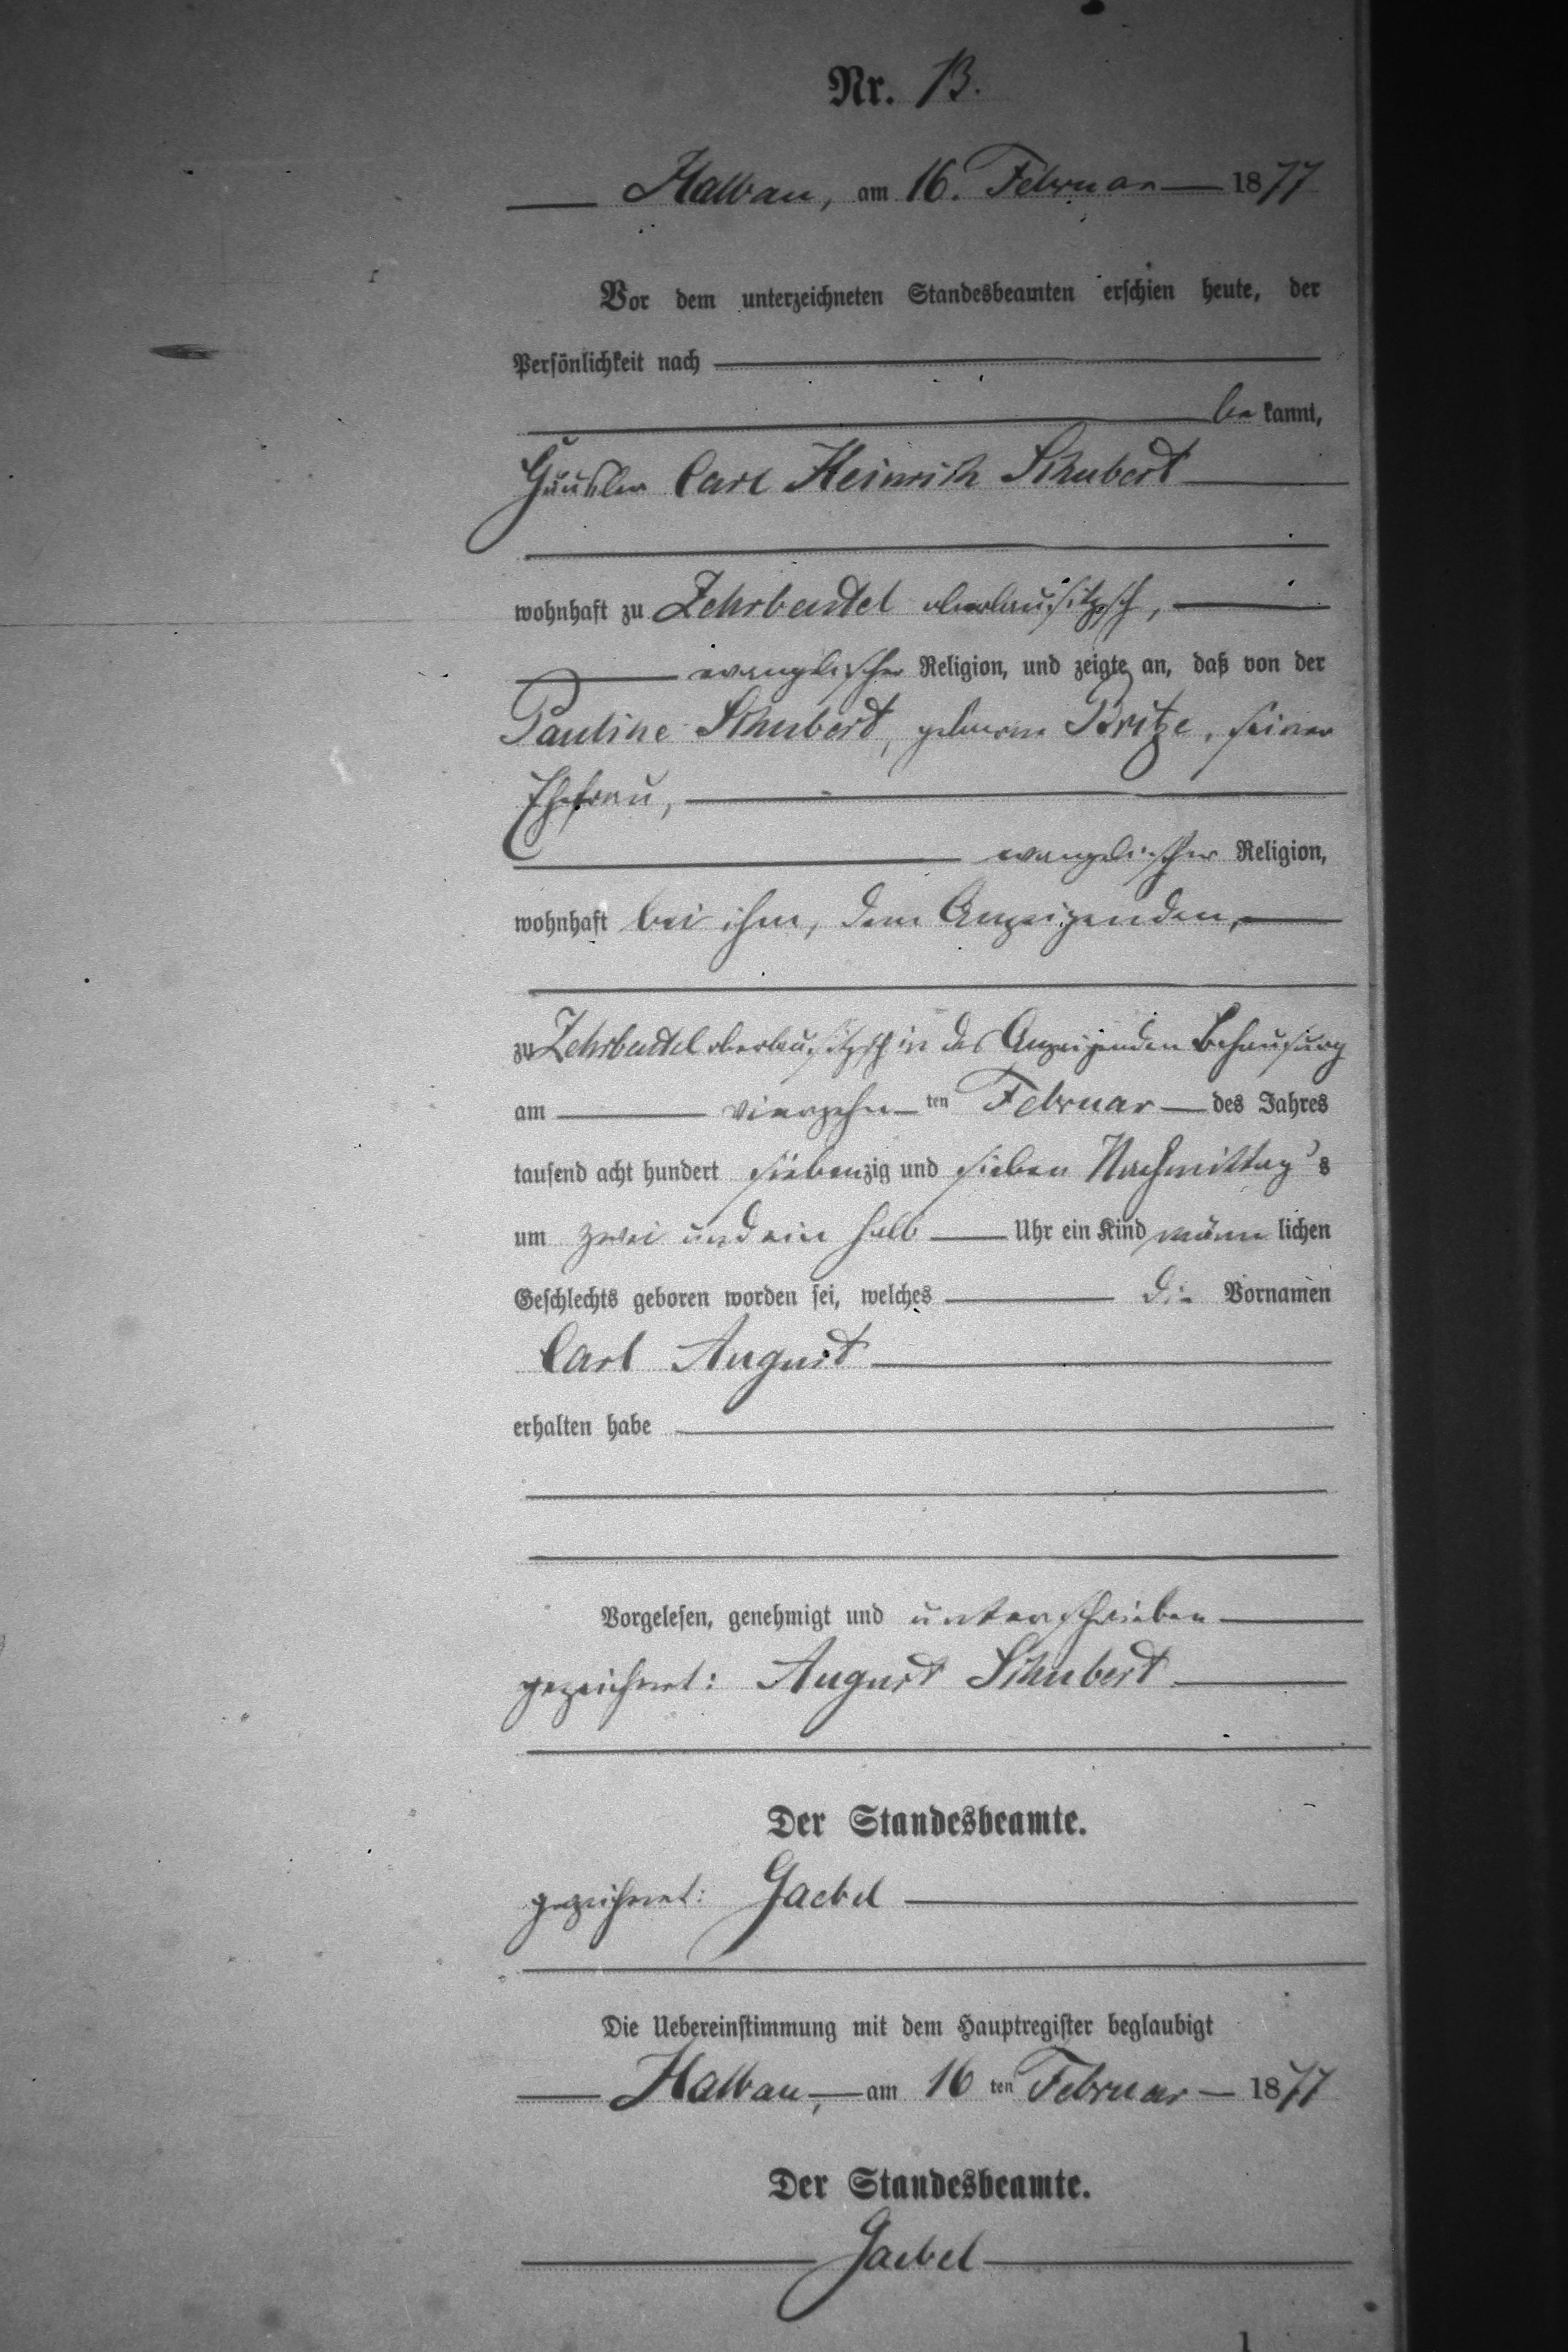 Nr. 13.
Halbau, am 16. Februar 1877
Vor dem unterzeichneten Standesbeamten erschien heute, der
Persönlichkeit nach
be kannt,
Häusler Carl Heinrich Schubert
wohnhaft zu Zehrbeutel oberlausitzisch,
evangelischer Religion, und zeigte an, daß von der
Pauline Schubert, geborne Britze, seiner
Ehefrau,
evangelischer Religion,
wohnhaft bei ihm, dem Anzeigenden,
zu Zehrbeutel oberlausitzisch in des Anzeigenden Behausung
am vierzehn ten Februar des Jahres
tausend acht hundert siebenzig und sieben Nachmittag's
um zwei und ein halb Uhr ein Kind männ lichen
Geschlechts geboren worden sei, welches die Vornamen
Carl August
erhalten habe
Vorgelesen, genehmigt und unterschrieben
gezeichnet: August Schubert
Der Standesbeamte.
gezeichnet: Gaebel
Die Uebereinstimmung mit dem Hauptregister beglaubigt
Halbau, am 16 ten Februar 1877
Der Standesbeamte.
Gaebel
1